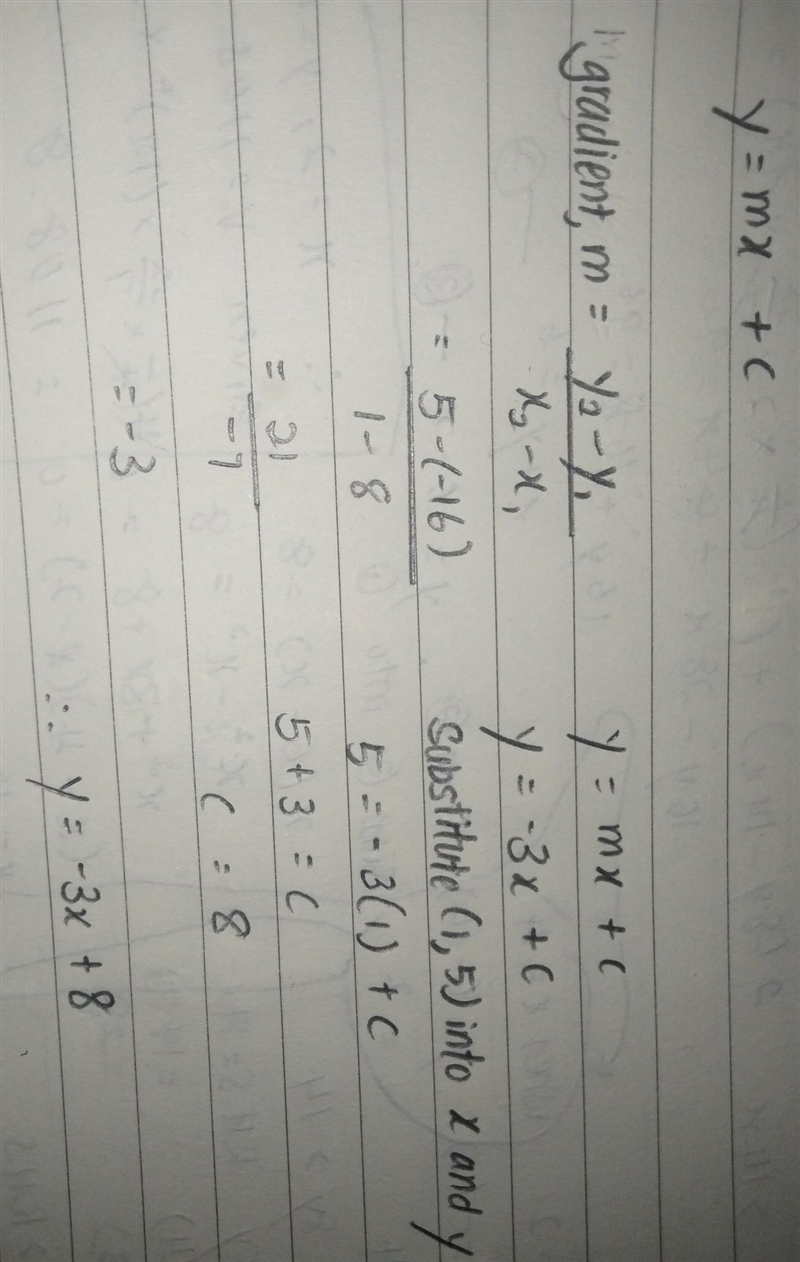 y = mx + c
gradient, m = y₂ - y₁
x₂ - x₁
= 5 - (-16)
1 - 8
= 21
-7
= -3
y = mx + c
y = -3x + c
Substitute (1, 5) into x and y
5 = -3(1) + c
5 + 3 = c
c = 8
∴ y = -3x + 8